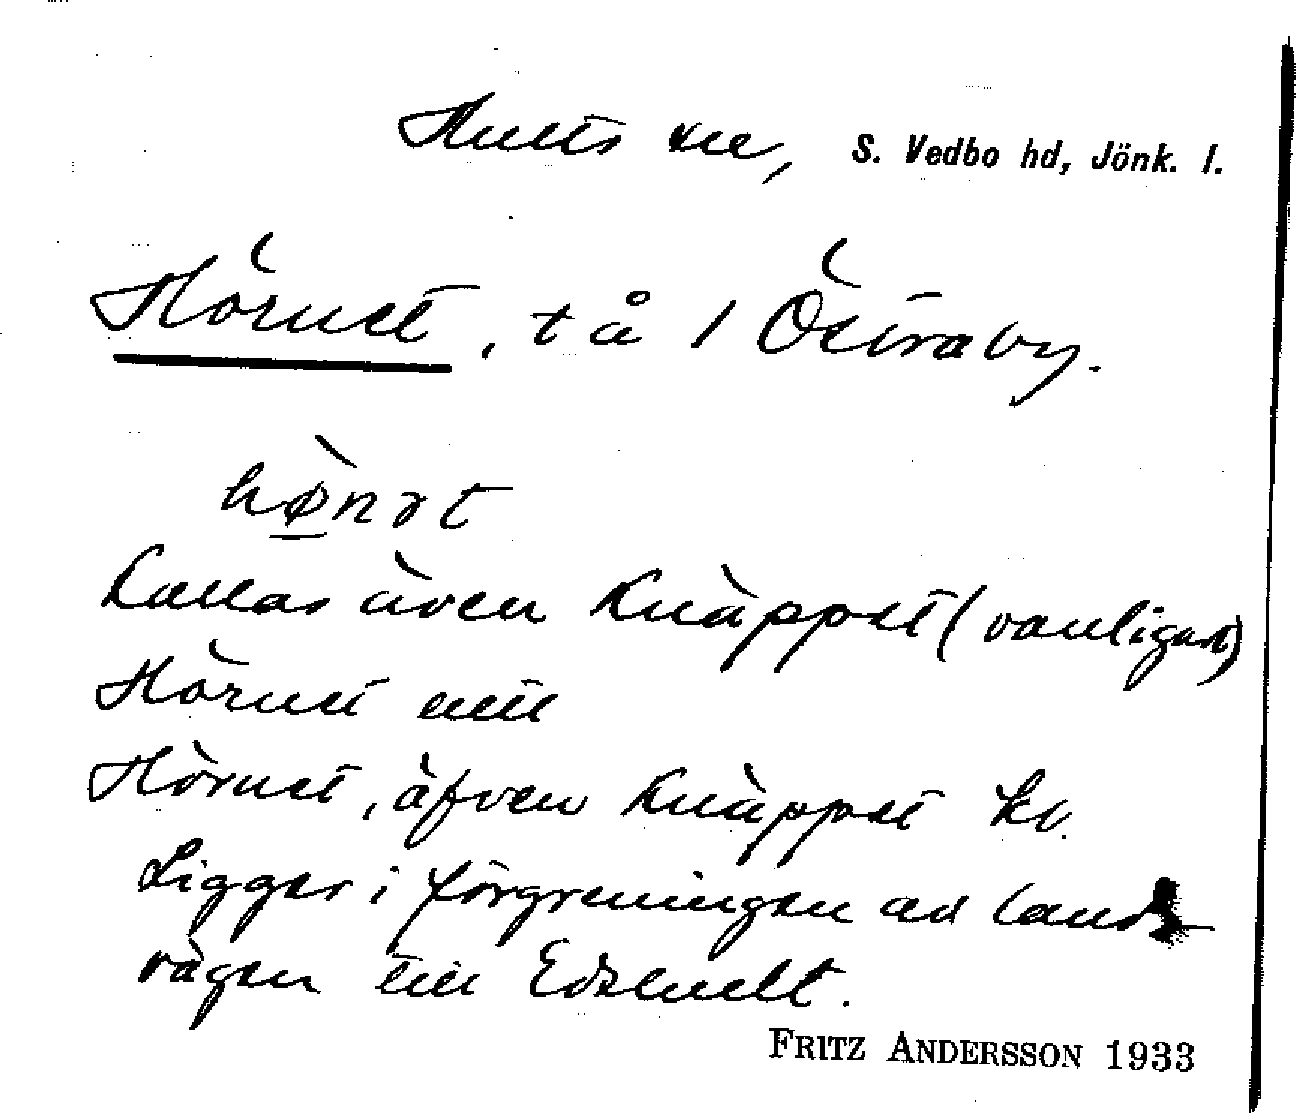 Hults sn, S. Vedbo hd, Jönk. l.
Hörnet, t å / Östraby.
hø̀nət
Kallas även Knäppet (vanligast)
Hörnet
Hörnet, äfven Knäppet
Ligger i förgreningen av lands-
vägen till Edshult.
FRITZ ANDERSSON 1933